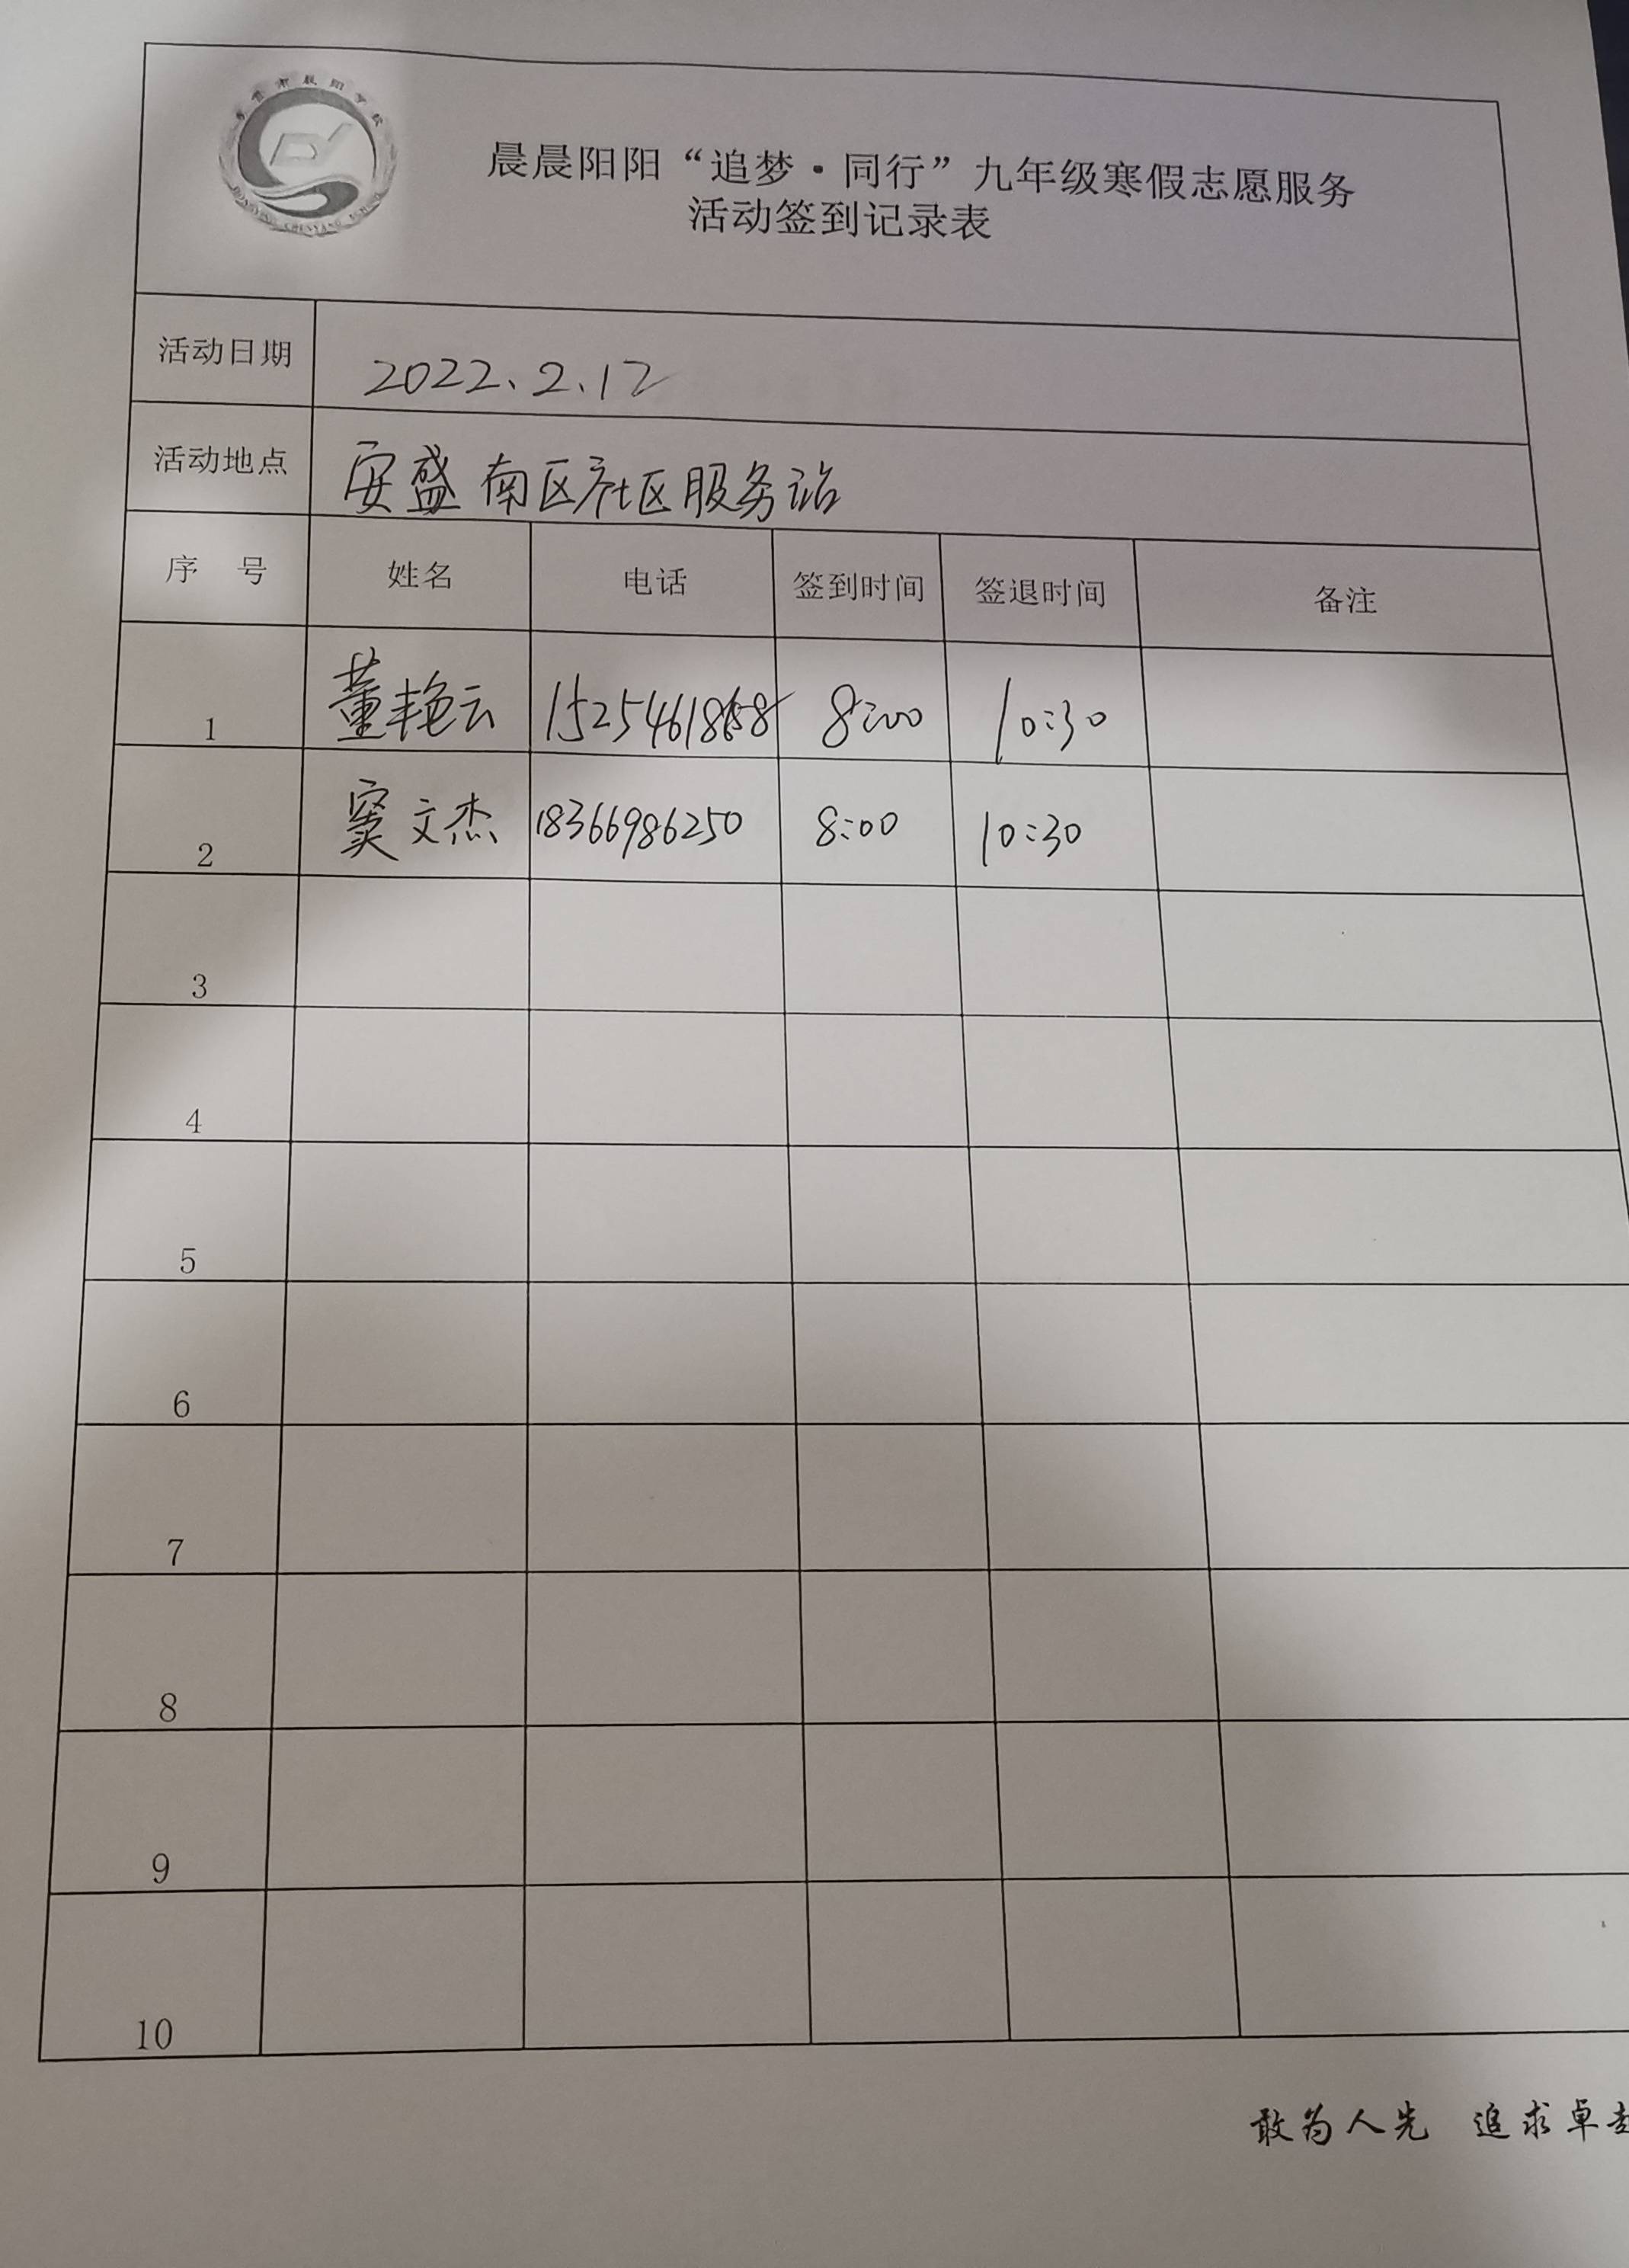 晨晨阳阳“追梦·同行”九年级寒假志愿服务
活动签到记录表
活动日期 2022.2.12
活动地点 安盛南区社区服务站
序 号 姓名 电话 签到时间 签退时间 备注
1 董艳云 8:00 10:30
2 窦文杰 18366986250 8:00 10:30
3
4
5
6
7
8
9
10
敢为人先 追求卓